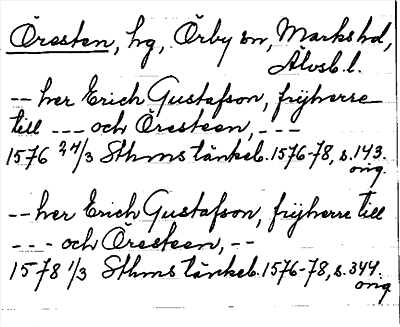 Öresten, hg, Örby sn, Markshd,
Älvsb.l.
-- her Erich Gustafson, frijherre
till --- och Öresteen, - - -
1576 24/3 Sthms tänkeb. 1576-78, s. 143.
orig.
-- her Erich Gustafson, frijherre till
- - - och Öresteen, --
1578 1/3 Sthms tänkeb. 1576-78, s. 344.
orig